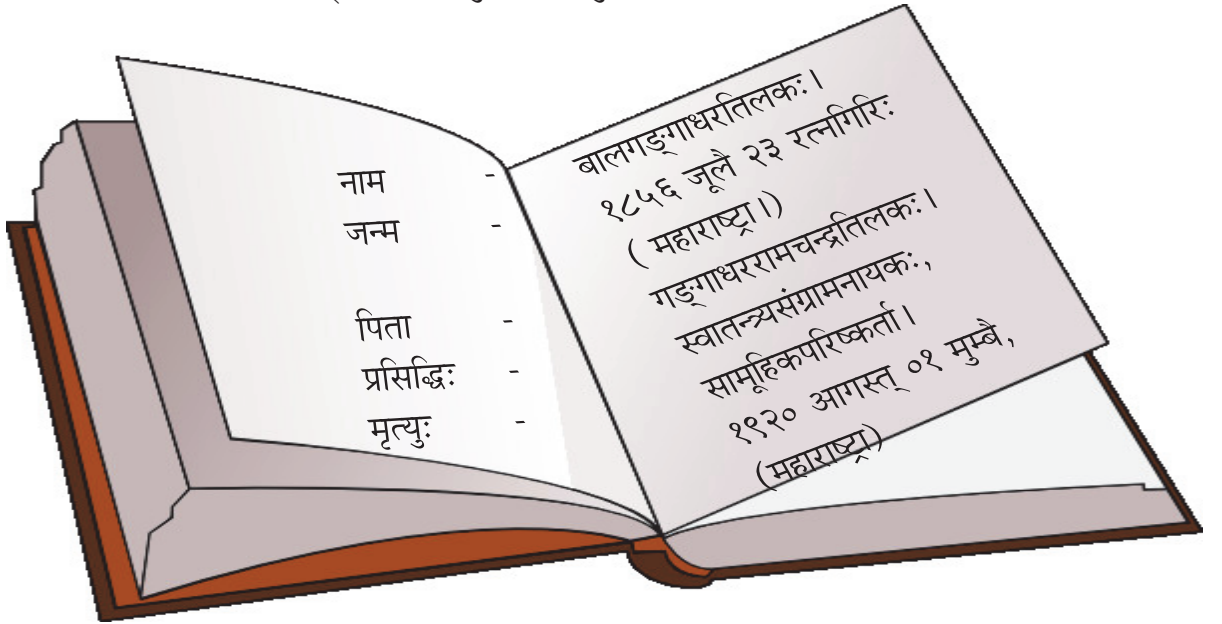 नाम -
जन्म -
पिता -
प्रसिद्धिः -
मृत्युः -
बालगङ्गाधरतिलकः।
१८५६ जूलै २३ रत्नगिरिः
( महाराष्ट्रा।)
गङ्गाधररामचन्द्रतिलकः।
स्वातन्त्र्यसंग्रामनायकः,
सामूहिकपरिष्कर्ता।
१९२० आगस्त् ०१ मुम्बै,
(महाराष्ट्रा)